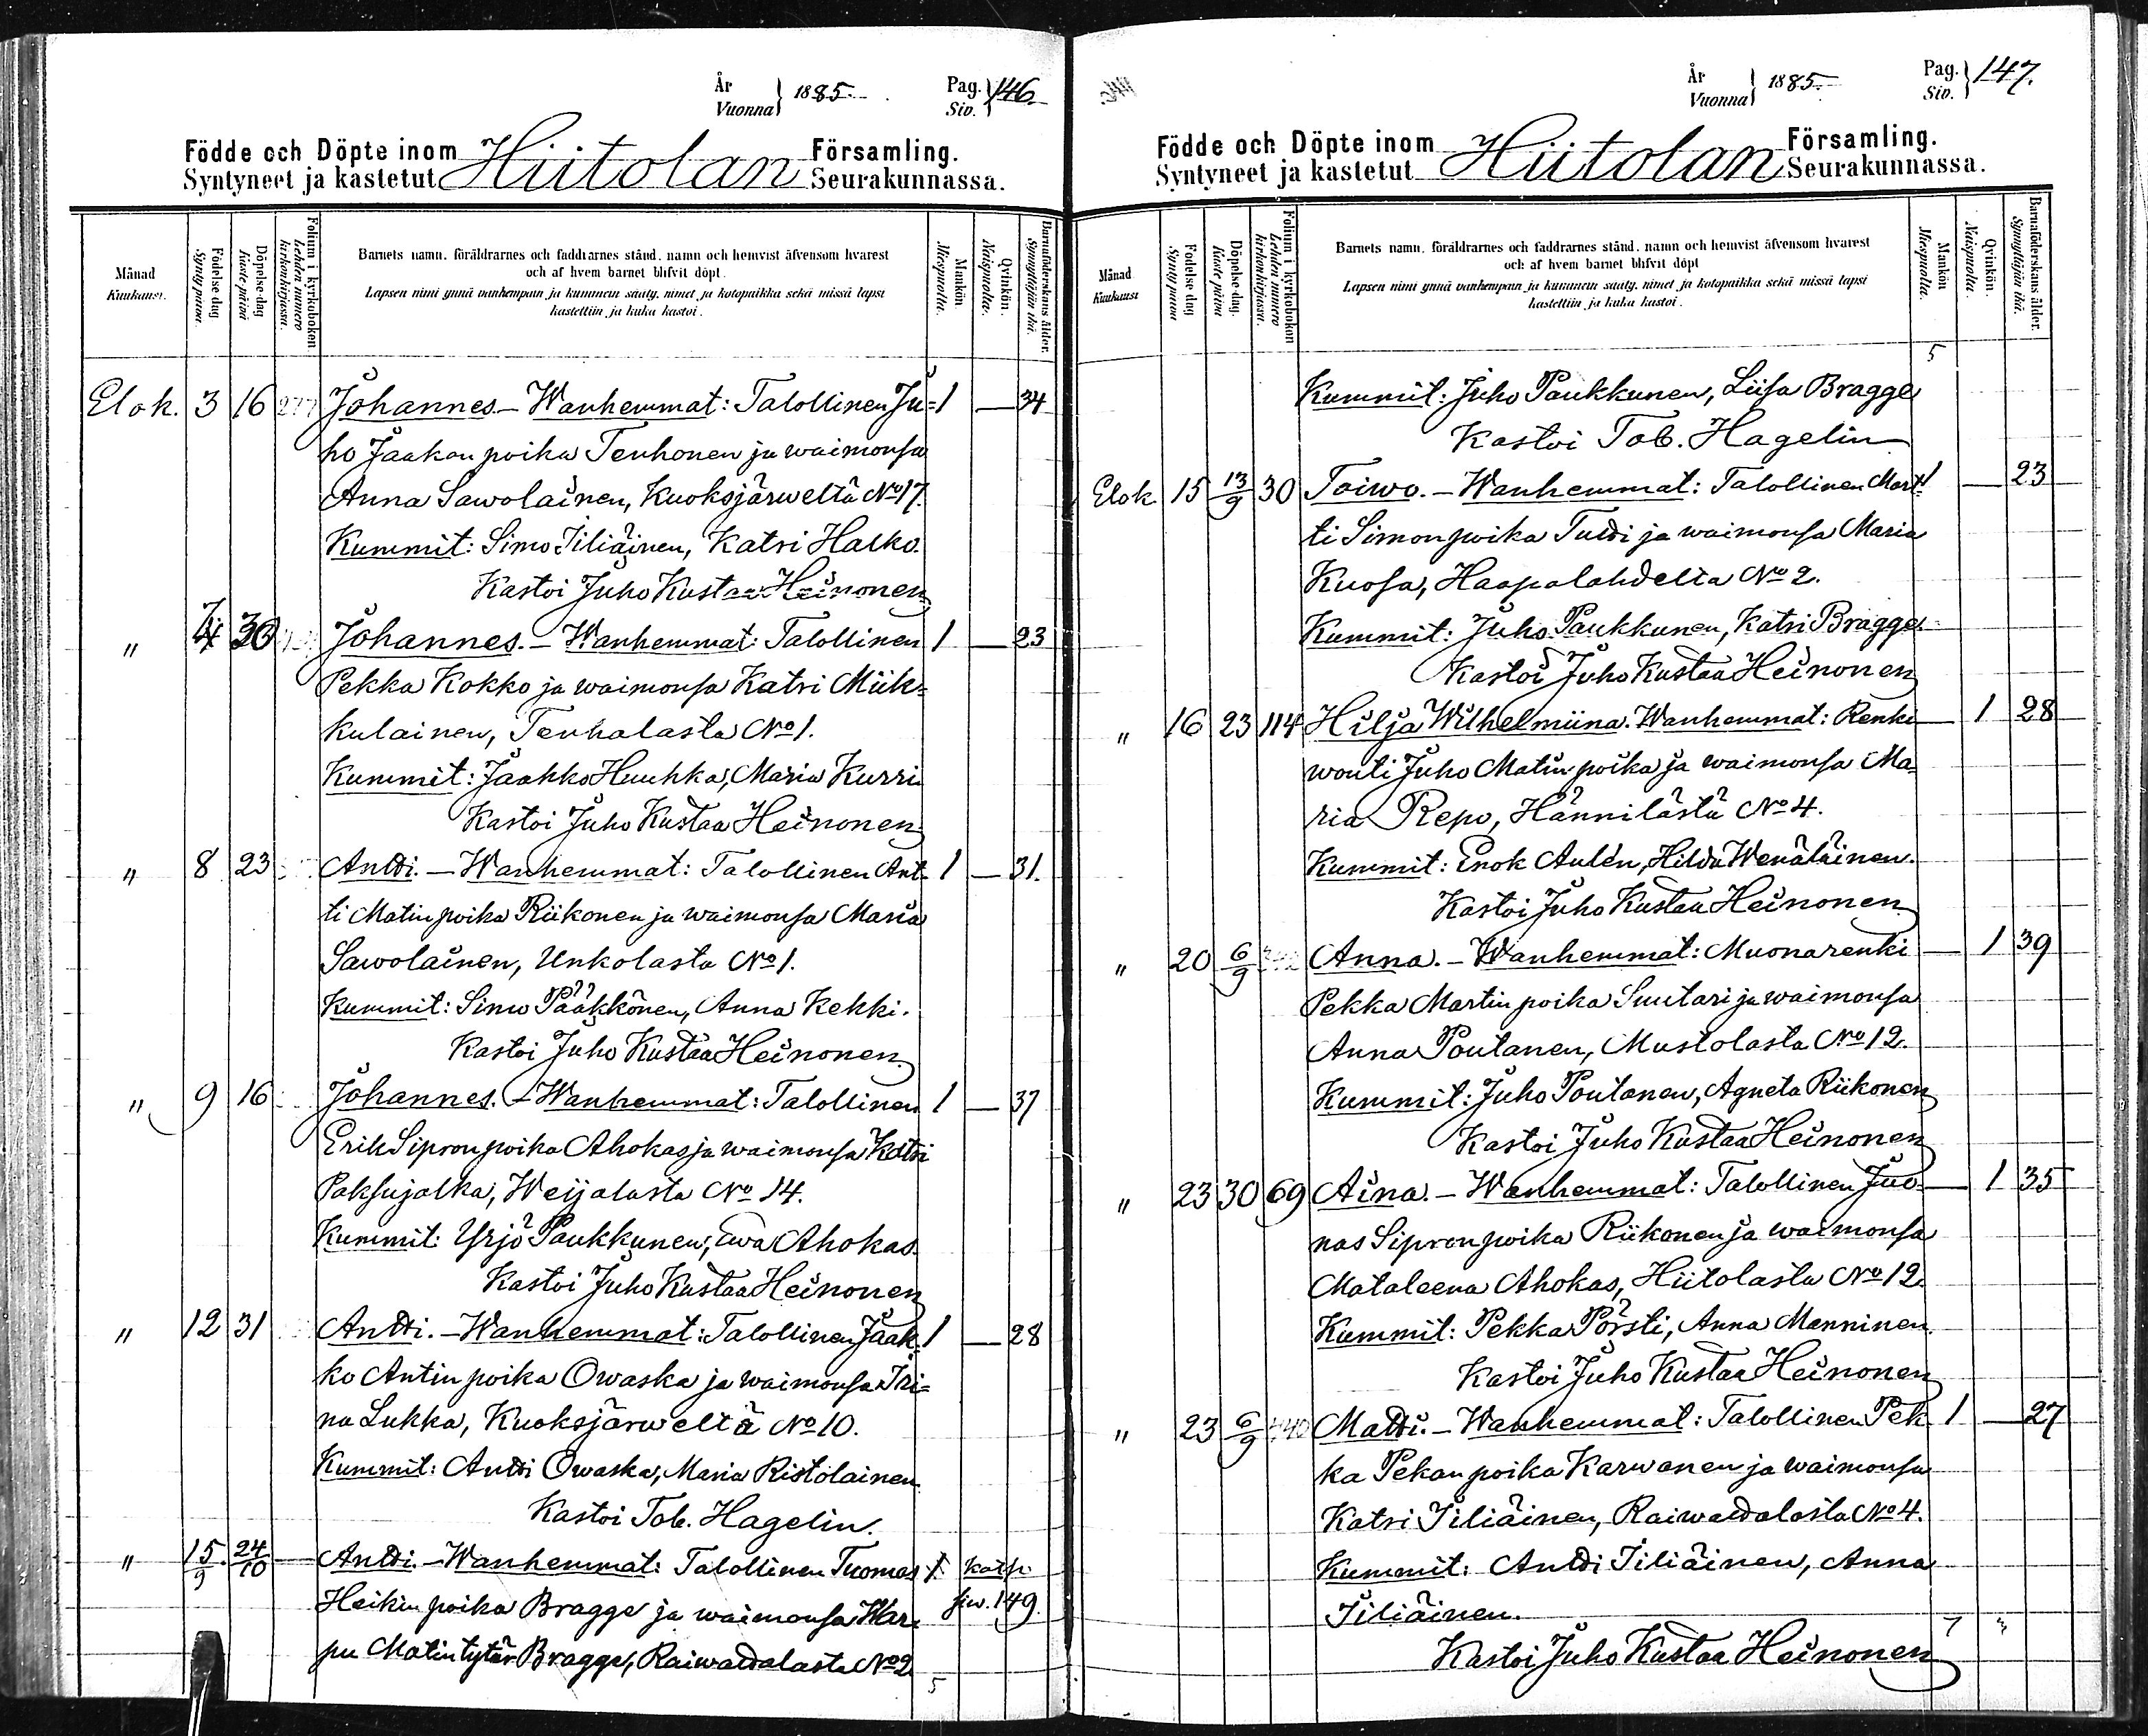 År
Vuonna } 1885. Pag.
Siv. } 146.
Födde och Döpte inom
Syntyneet ja kastetut Hiitolan Församling.
Seurakunnassa.
Månad
Kuukausi.
Födelse dag
Synty päivä.
Döpelse-dag
Kaste-päivä
Folium i kyrkoboken.
Lehden numero
kirkonkirjassa.
Barnets namn, föräldrarnes och faddrarnes stånd, namn och hemvist äfvensom hvarest
och af hvem barnet blifvit döpt.
Lapsen nimi ynnä vanhempain ja kummein sääty, nimet ja kotopaikka sekä missä lapsi
kastettiin ja kuka kastoi.
Mankön.
Miespuolta.
Qvinkön.
Naispuolta.
Barnaföderskans ålder.
Synnyttäjän ikä.
Elok. 3 16 277 Johannes. – Wanhemmat: Talollinen Ju= 1 — 34
ho Jaakon poika Tenhonen ja waimonsa
Anna Sawolainen, Kuoksjärweltä No 17.
Kummit: Simo Iiliäinen, Katri Halko.
Kastoi Juho Kustaa Heinonen
" 4 30 Johannes. – Wanhemmat: Talollinen 1 — 23
Pekka Kokko ja waimonsa Katri Miik=
kulainen, Tenhalasta No 1.
Kummit: Jaakko Huuhka, Maria Kurri
Kastoi Juho Kustaa Heinonen
" 8 23 Antti. – Wanhemmat: Talollinen Ant- 1 — 31.
ti Matin poika Riikonen ja waimonsa Maria
Sawolainen, Unkolasta No 1.
Kummit: Simo Pääkkönen, Anna Kekki.
Kastoi Juho Kustaa Heinonen.
" 9 16 Johannes. – Wanhemmat: Talollinen 1 — 37
Erik Sipron poika Ahokas ja waimonsa Katri
Paksujalka, Weijalasta No 14.
Kummit: Yrjö Paukkunen, Ewa Ahokas.
Kastoi Juho Kustaa Heinonen
" 12 31 Antti. – Wanhemmat: Talollinen Jaak= 1 — 28
ko Antin poika Owaska ja waimonsa Iri=
na Lukka, Kuoksjärweltä No 10.
Kummit: Antti Owaska, Maria Ristolainen.
Kastoi Tob. Hagelin.
" 15/9 24/10 — Antti. – Wanhemmat: Talollinen Tuomas 1 katso
Heikin poika Bragge ja waimonsa War= siw. 149.
pu Matin tytär Bragge, Raiwattalasta No 2
5
År
Vuonna } 1885. Pag.
Siv. } 147.
Födde och Döpte inom
Syntyneet ja kastetut Hiitolan Församling.
Seurakunnassa.
Månad
Kuukausi
Födelse dag
Synty päivä
Döpelse-dag.
Kaste päivä
Folium i kyrkoboken
Lehden numero
kirkonkirjassa.
Barnets namn, föräldrarnes och faddrarnes stånd, namn och hemvist äfvensom hvarest
och af hvem barnet blifvit döpt
Lapsen nimi ynnä vanhempain ja kummein sääty, nimet ja kotopaikka sekä missä lapsi
kastettiin ja kuka kastoi.
Mankön
Miespuolta.
Qvinkön.
Naispuolta.
Barnaföderskans ålder.
Synnyttäjän ikä.
5
Kummit: Juho Paukkunen, Liisa Bragge
Kastoi Tob. Hagelin
Elok 15 13/9 30 Toiwo. – Wanhemmat: Talollinen Mart= 1 — 23
ti Simon poika Tutti ja waimonsa Maria
Kuosa, Haapalahdelta No 2.
Kummit: Juho Paukkunen, Katri Bragge.
Kastoi Juho Kustaa Heinonen
" 16 23 114 Hilja Wilhelmiina. Wanhemmat: Renki — 1 28
wouti Juho Matin poika ja waimonsa Ma=
ria Repo, Hännilästä No 4.
Kummit: Enok Aulén, Hilda Wenäläinen.
Kastoi Juho Kustaa Heinonen
" 20 6/9 Anna. – Wanhemmat: Muonarenki — 1 39
Pekka Martin poika Suutari ja waimonsa
Anna Poutanen, Mustolasta No 12.
Kummit: Juho Poutanen, Agneta Riikonen
Kastoi Juho Kustaa Heinonen
" 23 30 69 Aina. – Wanhemmat: Talollinen Juo= — 1 35
nas Sipron poika Riikonen ja waimonsa
Mataleena Ahokas, Hiitolasta No 12.
Kummit: Pekka Pörsti, Anna Manninen.
Kastoi Juho Kustaa Heinonen
" 23 6/9 440 Matti. – Wanhemmat: Talollinen Pek 1 — 27
ka Pekan poika Karwanen ja waimonsa
Katri Iiliäinen, Raiwattalasta No 4.
Kummit: Antti Iiliäinen, Anna
Iiliäinen.
7 "
Kastoi Juho Kustaa Heinonen